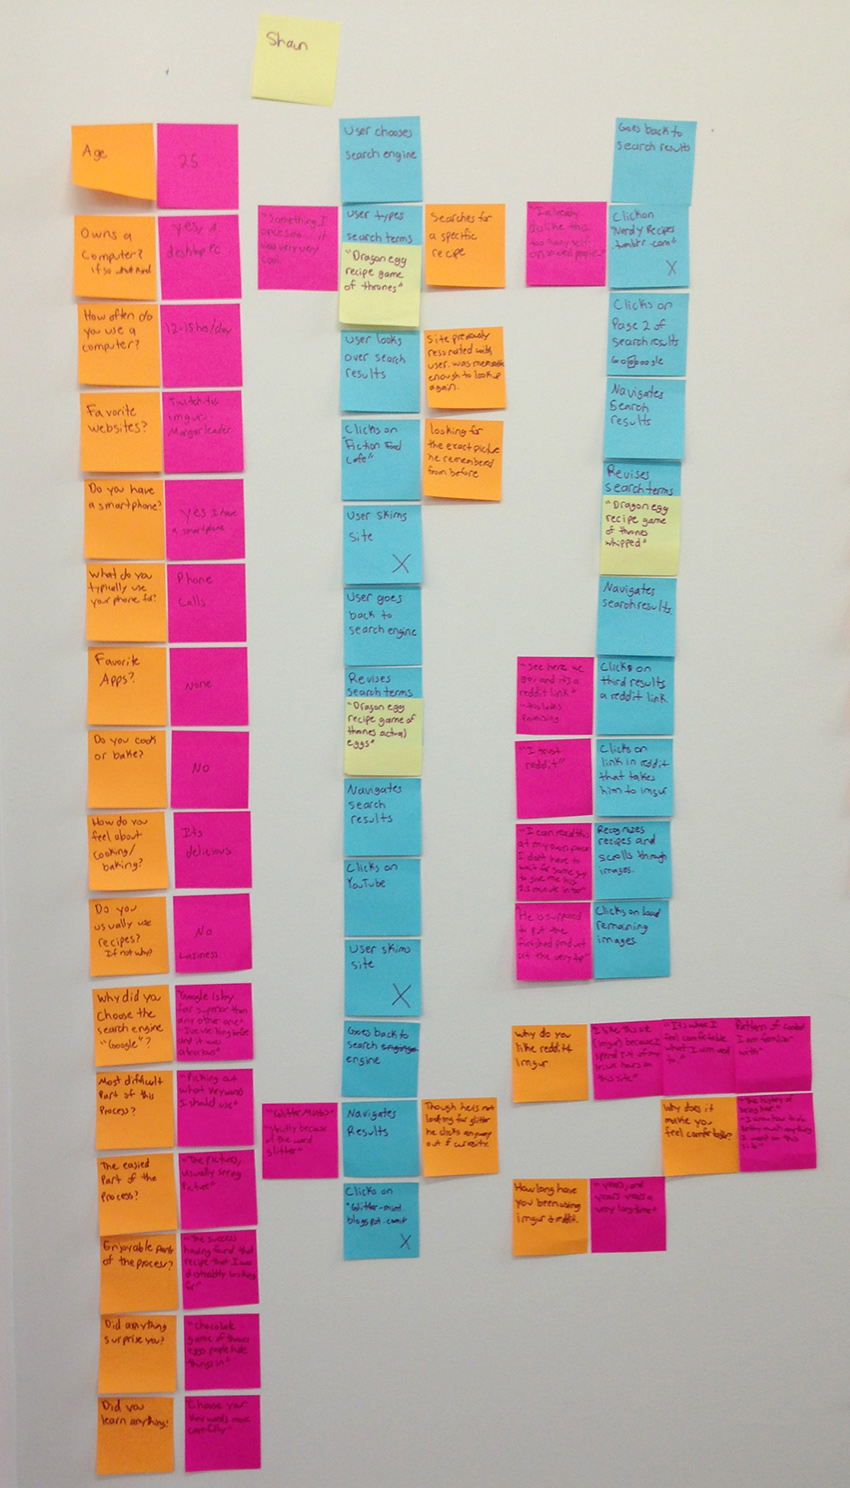 Shaun
Age
25
Owns a
Computer?
If so what kind
yes, A
desktop PC
How often do
you use a
computer?
12-15 hrs/day
Favorite
websites?
Twitch.tv
imgur
Do you have
a smartphone?
yes I have
a smartphone
What do you
typically use
your phone for?
Phone
Calls
Favorite
Apps?
None
Do you cook
or bake?
No
How do you
feel about
cooking/
baking?
Its
delicious
Do you
usually use
recipes?
If not why?
No
Laziness
Why did you
Choose the
search engine
"Google"?
"Google is by
far superior than
any other one"
and it was
atrocious"
Most difficult
Part of this
Process?
"Picking out
what keyword
I should use"
The easiest
Part of the
Process?
"The pictures,
usually seeing
Picture"
Enjoyable parts
of the process?
"The success
having found that
recipe that I was
looking
for"
Did anything
surprise you?
"Chocolate
game of thrones
eggs people hide
things in"
Did you
learn anything?
Choose your
Key words more
carefully"
User chooses
search engine
"Something I
once saw... it
was very very
cool
User types
search terms
"Dragon egg
recipe game
of thrones"
Searches for
a specific
recipe
User looks
over search
results
Site previously
resonated with
user. was memorable
enough to look up
again.
Clicks on
"Fiction Food
Cafe"
looking for
the exact picture
he remembered
from before
User skims
site
X
User goes
back to
search engine
Revises
search terms
"Dragon egg
recipe game of
thrones actual
eggs"
Navigates
search
results
Clicks on
YouTube
User skims
site
X
Goes back to
search engine
engine
"Glitter Mints"
"strictly because
of the word
glitter"
Navigates
Results
Though he is not
looking for glitter
he clicks anyway
out of curiosity.
Clicks on
"Glitter-mint.
blogspot.com"
X
Goes back to
search results
"I already
dislike this
too many self
oriented people"
Click on
"Nerdy Recipes
.tumblr.com"
X
Clicks on
Page 2 of
search results
Navigates
Search
results
Revises
search terms
"Dragon egg
recipe game
of thrones
whipped"
Navigates
search results
"See here we
go, and its a
reddit link"
promising
Clicks on
third results
a reddit link
"I trust
reddit"
Clicks on
link in reddit
that takes
him to imgur
"I can read this
at my own pace
I don't have to
wait for some guy
to give me his
Recognizes
recipes and
scrolls through
images.
"He is supposed
to put the
finished product
at the very top"
Clicks on load
remaining
images.
Why do you
like reddit
imgur
I like this site
(imgur) because I
spend
hours on
this site"
"Its what I
feel comfortable
what I am used
to."
Pattern of comfort
I am familiar
with"
Why does it
make you
feel comfortable?
"The history of
being here."
"I know how to do
pretty much anything
I want on this
site"
How long have
you been using
imgur & reddit.
"years, and
years years a
very long time"